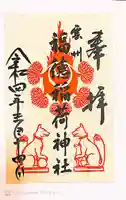 奉拝
雲州
福徳稲荷神社
令和四年十二月四日